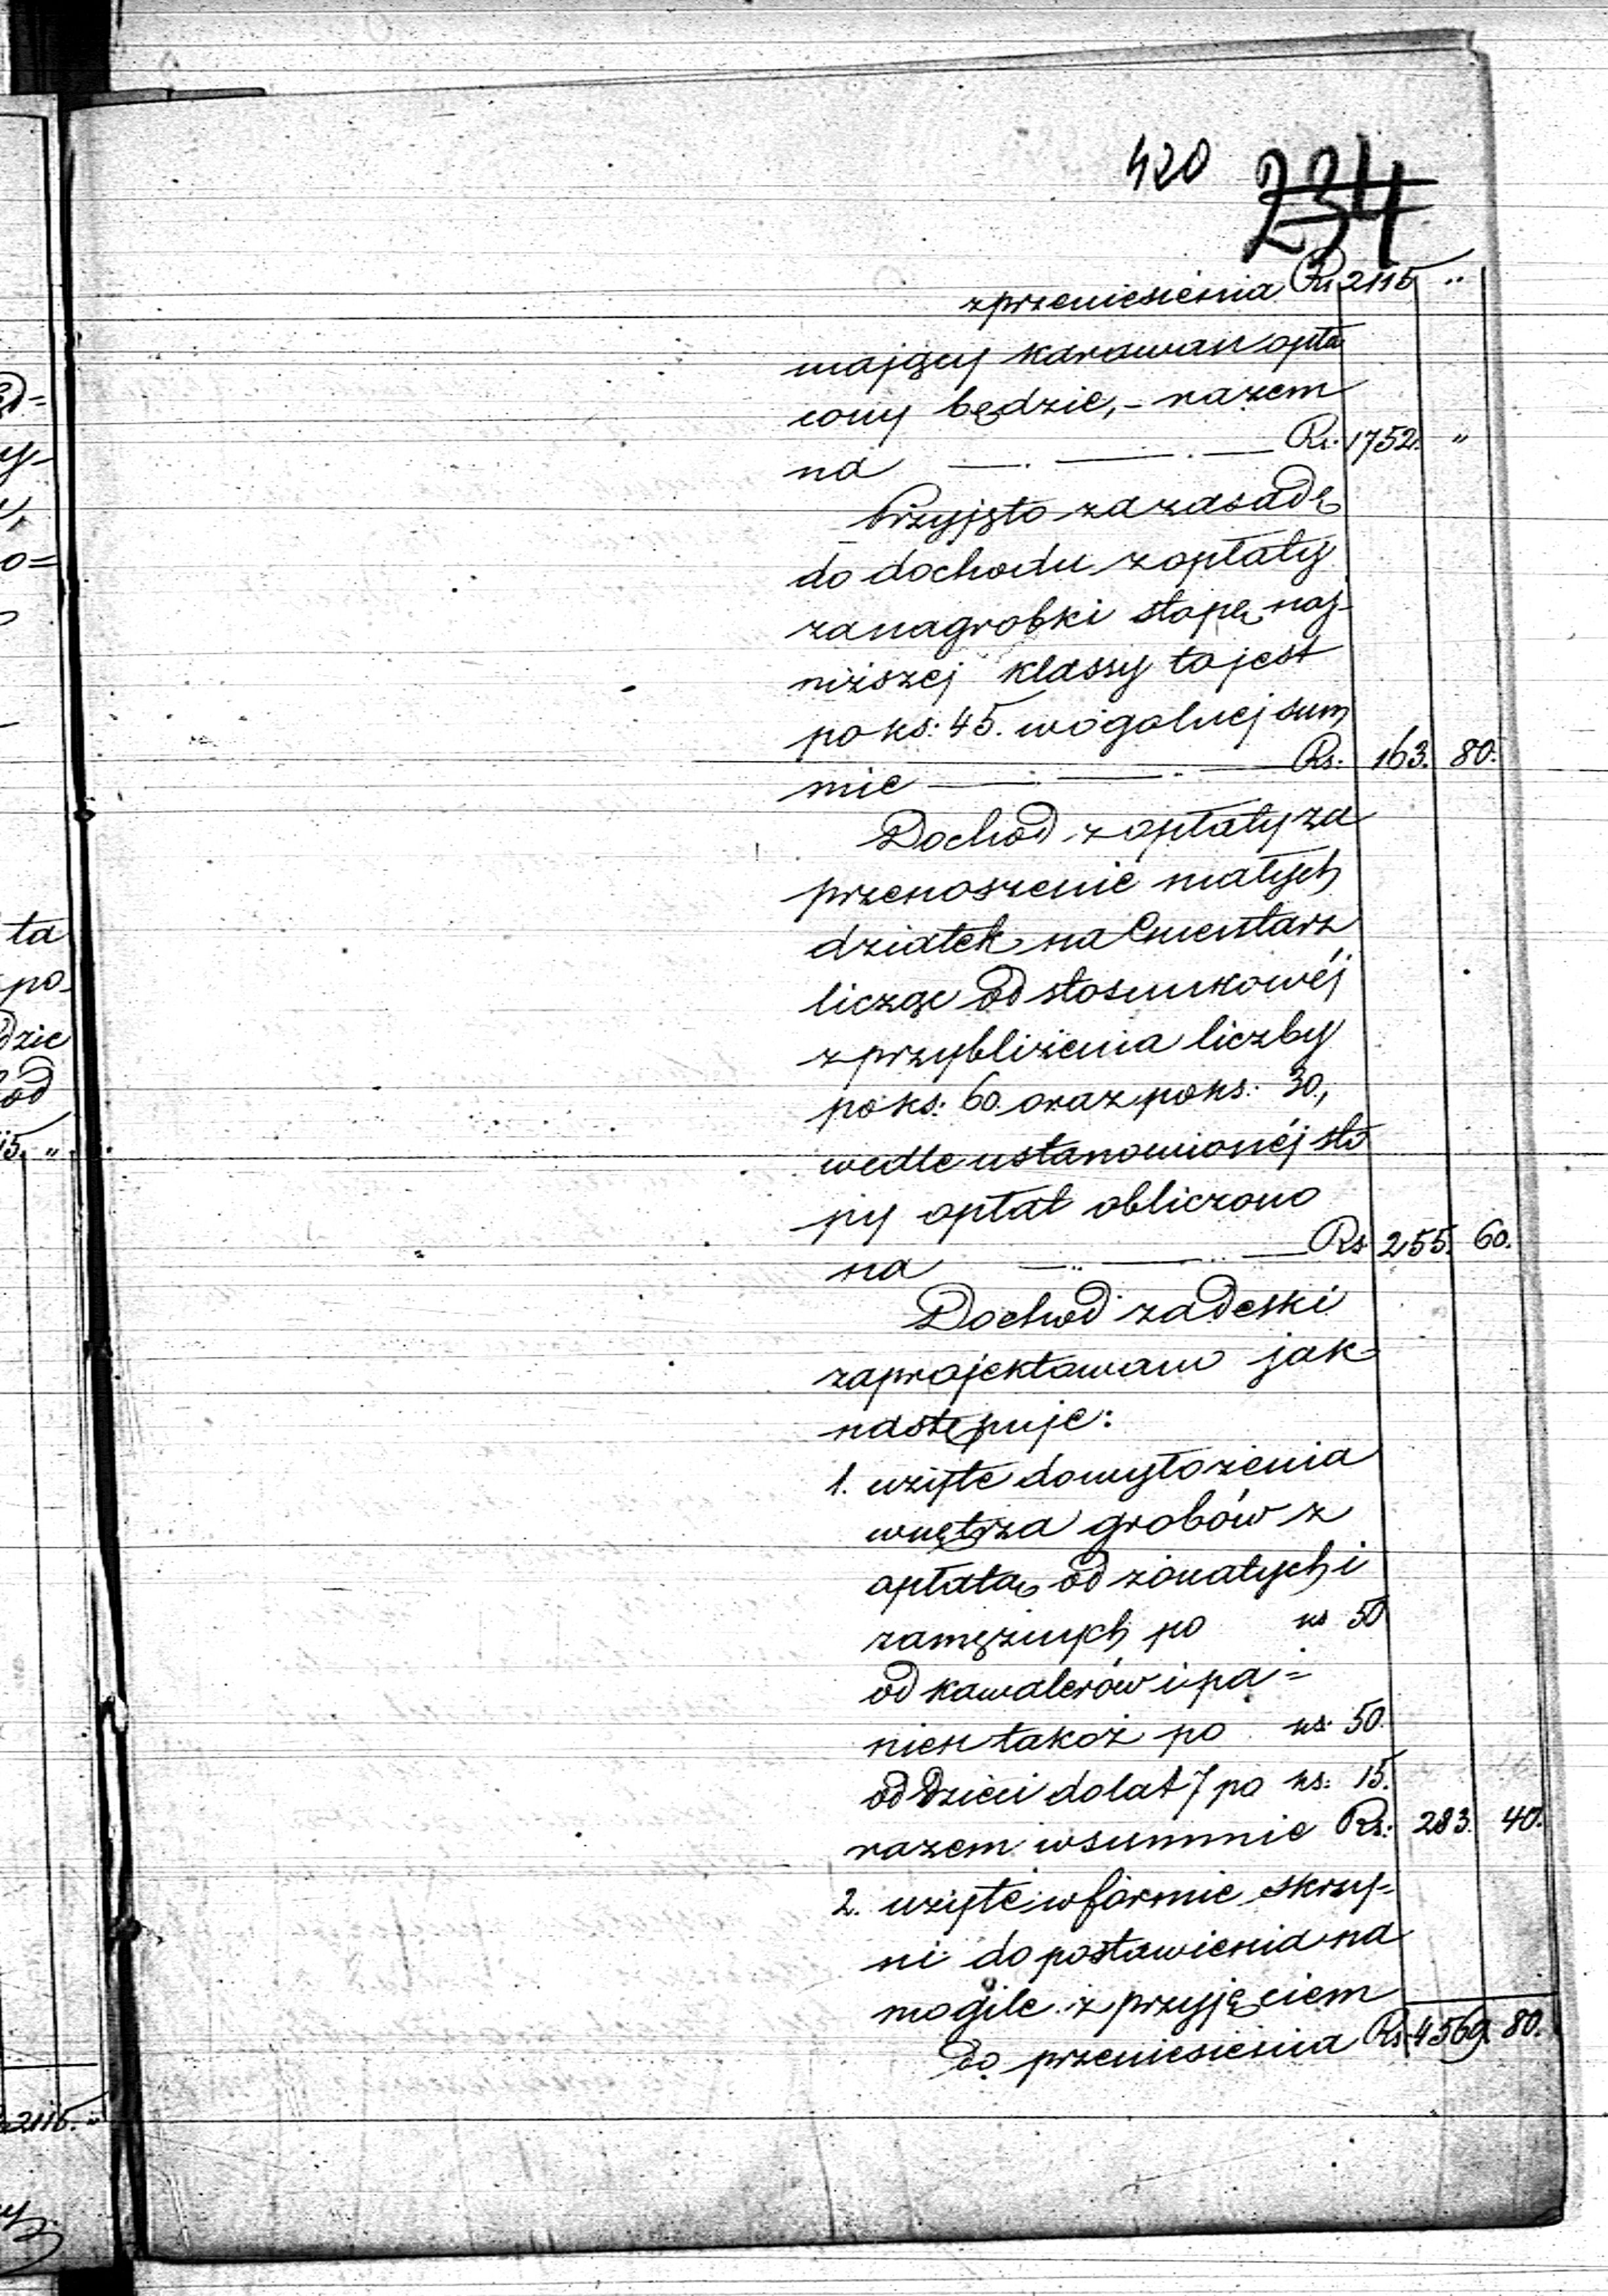 420 234
z przeniesienia Rs. 2115 "
mający karawan opła
cony będzie, - razem
na — . — . — Rs. 1752. "
Przyjęto za zasadę
do dochodu z opłaty
za nagrobki stopę naj-
niższej klassy to jest
po ks: 45. w ogólnej sum
mie — . — . — Rs. 163. 80.
Dochód z opłaty za
przenoszenie małych
dziatek na Cmentarz
licząc od stosunkowéj
z przybliżenia liczby
po ks: 60. oraz po ks: 30.,
wedle ustanowionéj sto
py opłat obliczono
na — .. — .. — Rs. 255. 60.
Dochód za deski
zaprojektowano jak-
następuje:
1. użyte do wyłożenia
wnętrza grobów z
opłatą od żonatych i
zamężnych po ks 50
od kawalerów i pa=
nien takoż po ks. 50.
od dzieci do lat 7 po ks: 15.
razem w summie Rs: 283. 40.
2. użyte w formie skrzy=
ni do postawienia na
mogile z przyjęciem
do przeniesienia Rs. 4569. 80.
ta
po-
dzie
od
15. "
2115. "